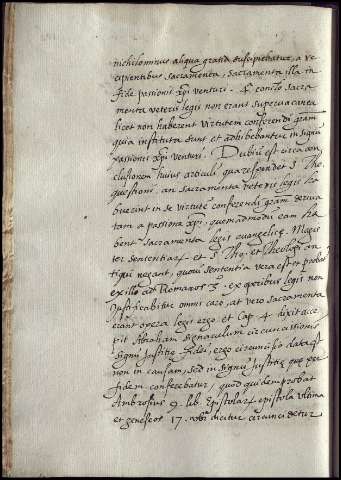 nichilominus aliqua gratia suscipiebatur, a re
cipientibus sacramenta, sacramenta illa in
fide passionis xpi venturi. Et consequenter sacra
menta veteris legis non erant supervacanea
licet non haberent virtutem conferendi gram
quia instituta sunt et adhibebantur in signū
passionis xpi venturi. Dubiū est circa con
clusionem huius articuli, qua respondet S. Tho.
quaestioni, an sacramenta veteris legis ha
buerint in se virtutē conferendi gram deriva
tam a passione xpi, quemadmodū eam ha
bent sacramenta legis evangelicę. Magis
ter sententiarū et S. Tho. et Theologi an
tiqui negant, quorū sententia vera est et probatʳ
ex illo ad Romanos 3. ex operibus legis non
justificabitur omnis caro, at vero sacramenta
erant opera legis ergo et Cap. 4 dixit acce
pit Abraham signaculum circuncissionis
signū justitię fidei ergo circuncisio data est
non in causam, sed in signū justitię que per
fidem conferebatur, quod quidem probat
Ambrosius 9 lib. Epistolarū epistola ultima
et geneseos 17. ubi dicitur circuncidetur